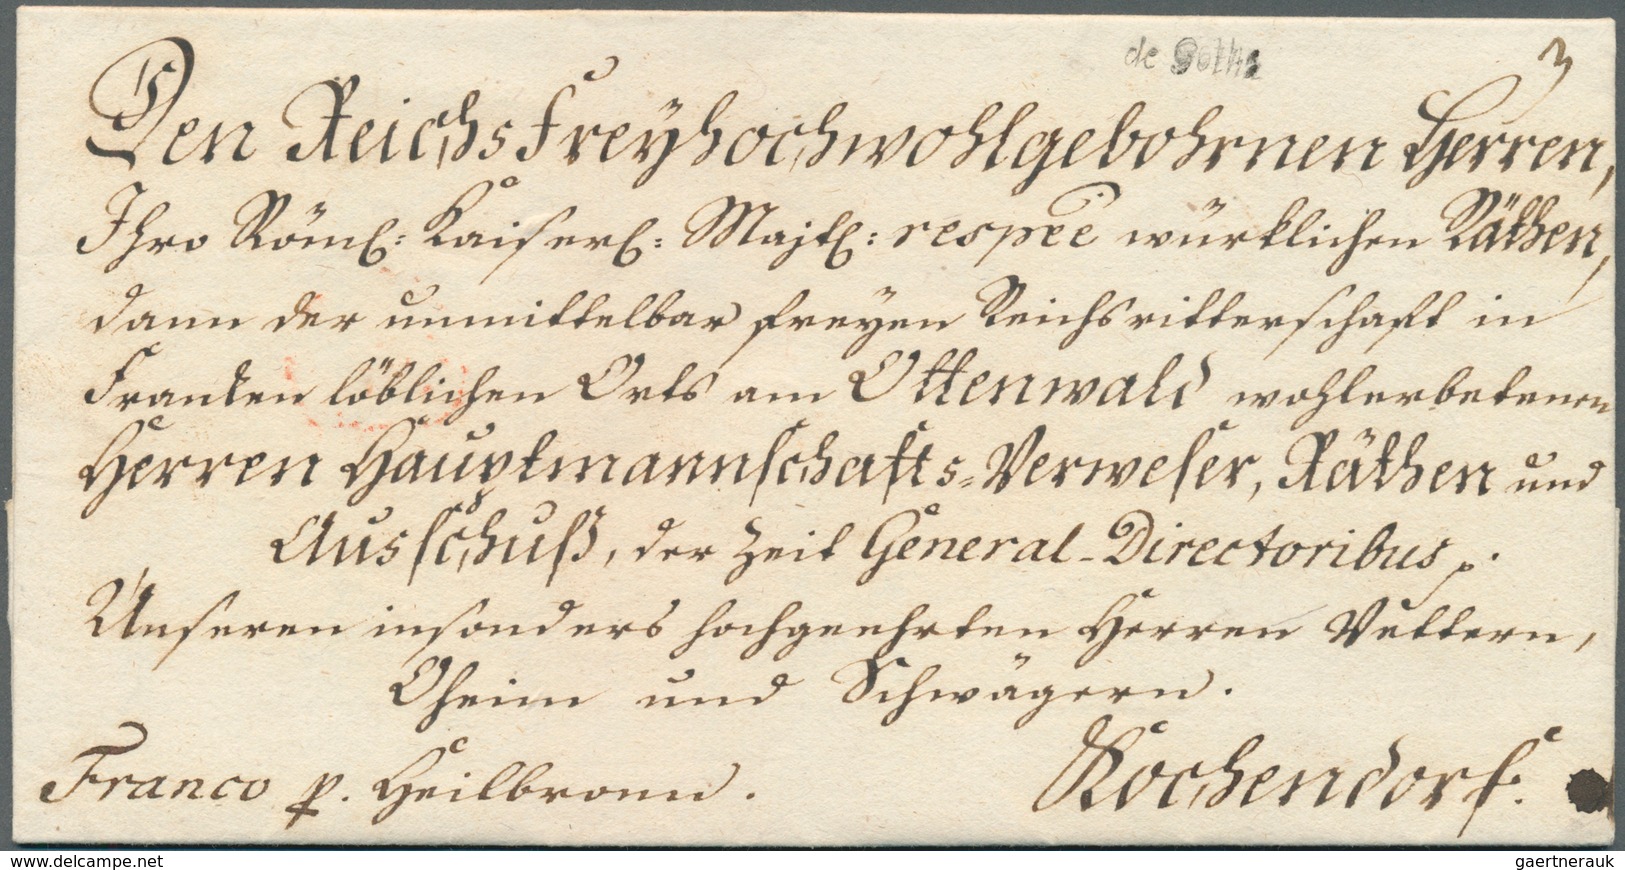 de Gotha
3
Den Reichs freyhochwohlgebohrnen Herren,
Ihro Römel: Kaiserl: Majtl: respeê würklichen Räthen,
dann der unmittelbar freyen Reichsritterschaft in
Franken löblichen Orts am Ottenwald wohlerbetenen
Herren Hauptmannschafts-Verweser, Räthen und
Ausschuß, der Zeit General-Directoribus p.
Unseren insonders hochgeehrten Herren Vettern,
Oheim und Schwägern.
Franco p. Heilbronn.
Kochendorf.
www.delcampe.net
gaertnerauk